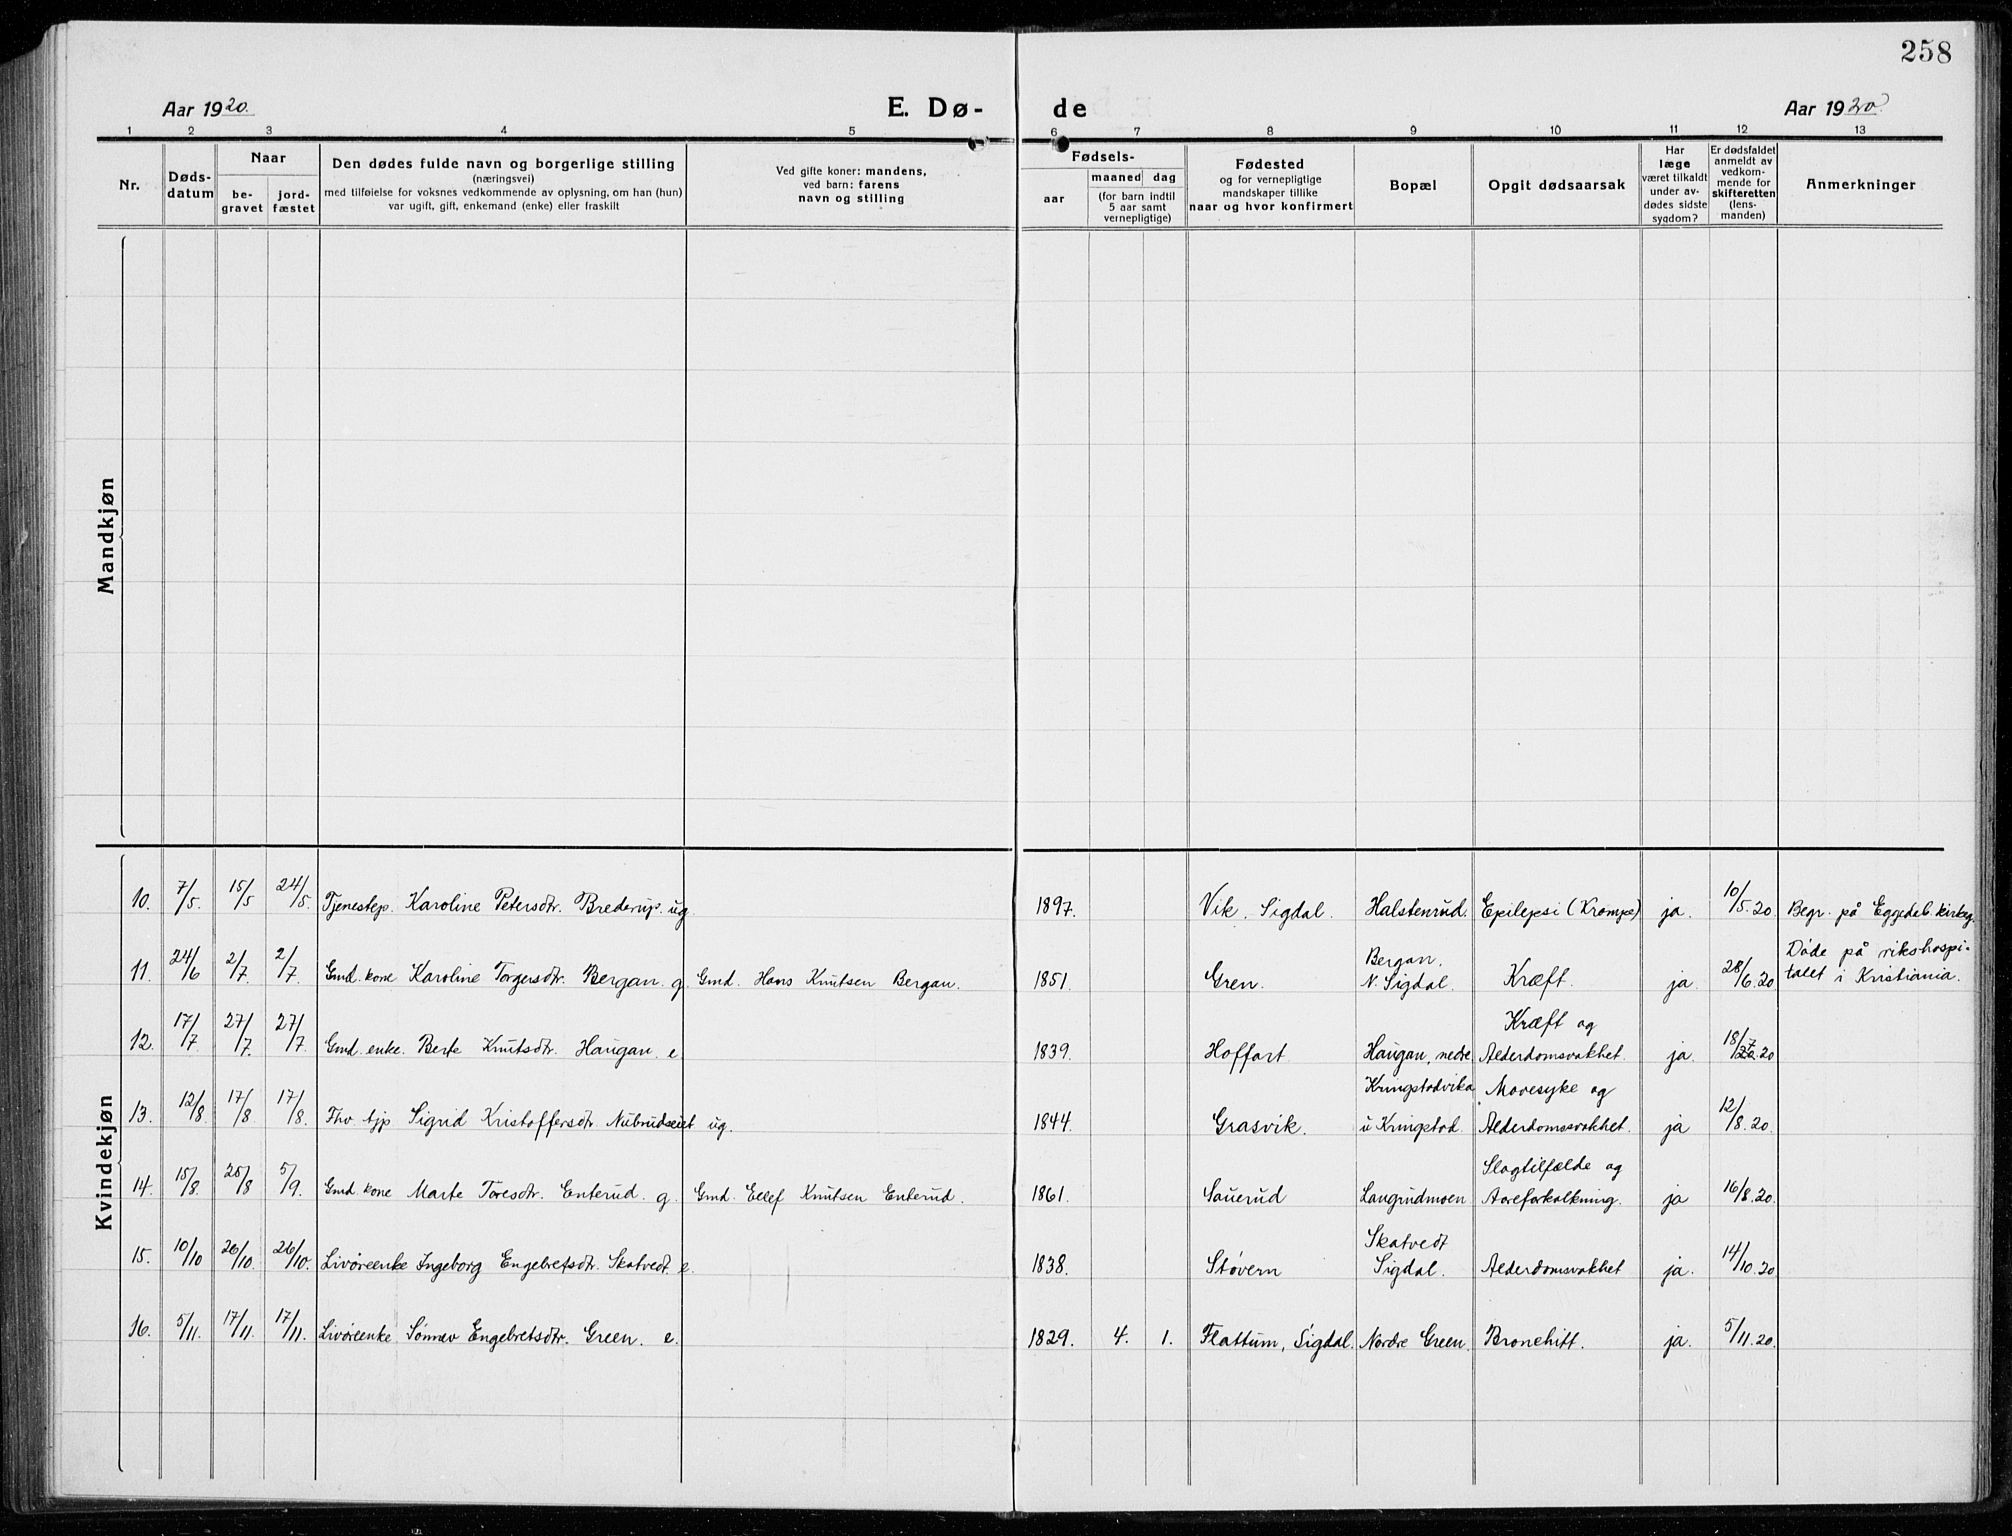 258
Aar 1920.
E. Dø-
de
Aar 1920
1 2 3 4 5 6 7 8 9 10 11 12 13
Nr.
Døds-
datum
Naar
be-
gravet
jord-
fæstet
Den dødes fulde navn og borgerlige stilling
(næringsvei)
med tilføielse for voksnes vedkommende av oplysning, om han (hun)
var ugift, gift, enkemand (enke) eller fraskilt
Ved gifte koner: mandens,
ved barn: farens
navn og stilling
Fødsels-
aar
maaned dag
(for barn indtil
5 aar samt
vernepligtige)
Fødested
og for vernepligtige
mandskaper tillike
naar og hvor konfirmert
Bopæl
Opgit dødsaarsak
Har
læge
været tilkaldt
under av-
dødes sidste
sygdom?
Er dødsfaldet
anmeldt av
vedkom-
mende for
skifteretten
(lens-
manden)
Anmerkninger
Mandkjøn
Kvindekjøn
10. 7/5. 15/5 24/5. Tjenestep. Karoline Petersdtr. Brederup. ug. 1897. Vik, Sigdal. Halstenrud. Epilepsi (Krampe) ja. 10/5.20. Begr. på Eggedal kirkeg.
11. 24/6 2/7. 2/7. Gmd. kone Karoline Torgersdtr. Bergan. g. Gmd. Hans Knutsen Bergan. 1851. Gren. Bergan, N. Sigdal. Kræft. ja. 28/6.20 Døde på rikshospi-
talet i Kristiania.
12. 17/7. 27/7. 27/7. Gmd. enke. Berte Knutsdtr. Haugan. e. 1839. Hoffart Haugan, nedre. Kræft og
Alderdomsvakhet. ja. 18/7.20
13. 12/8. 17/8 17/8. Fhv. tjp Sigrid Kristoffersdtr. Nubrudseiet ug. 1844. Grasvik. Kringstadvika
u Kringstad. Mavesyke og
Alderdomssvakhet. ja 12/8.20.
14. 15/8. 25/8 5/9. Gmd. kone Marte Toresdtr. Enterud. g. Gmd. Ellef Knutsen Enterud. 1861. Sauerud Laugrudmoen Slagtilfælde og
Aareforkalkning. ja 16/8.20.
15. 10/10 26/10. 26/10. Livøreenke Ingeborg Engebretsdtr. Skatvedt. e. 1838. Støvern Skatvedt
Sigdal. Alderdomsvakhet ja. 14/10.20
16. 5/11. 17/11. 17/11. Livøreenke Sønnev Engebretsdtr. Green. e. 1829. 4. 1. Flattum, Sigdal. Nordre Green. Bronchitt. ja. 5/11.20.